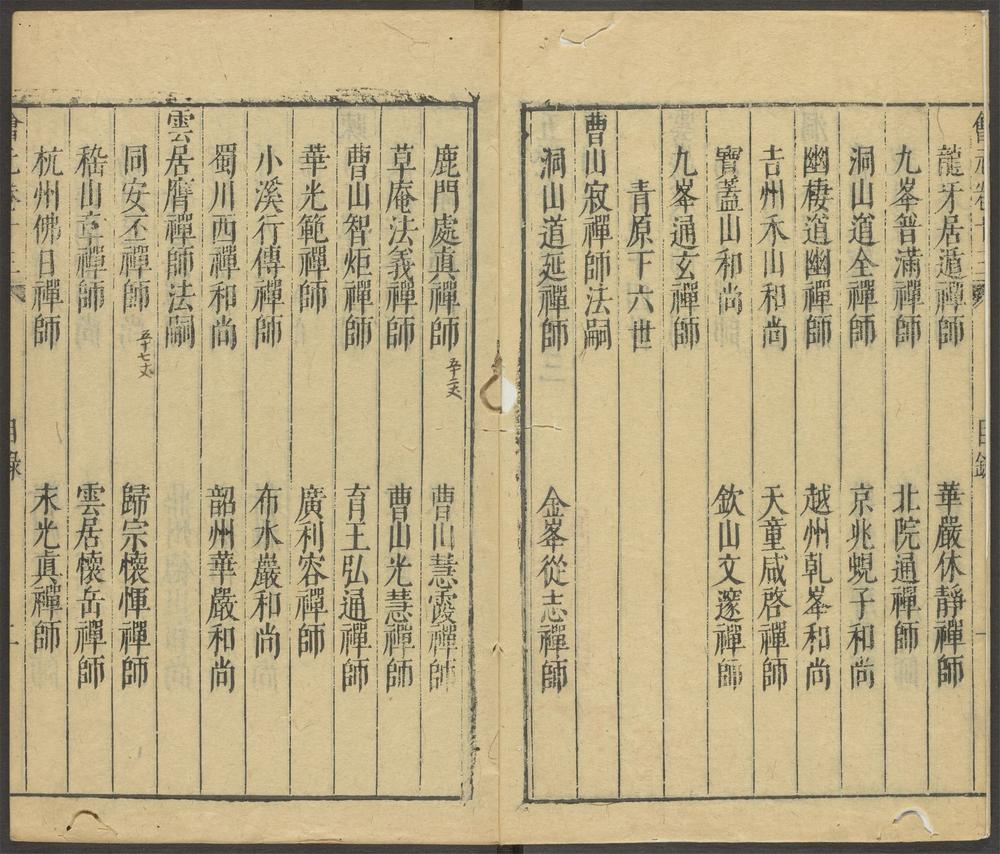 龍牙居遁禪師 華嚴休靜禪師
九峯普滿禪師 北院通禪師
洞山道全禪師 京兆蜆子和尚
幽棲道幽禪師 越州乾峯和尚
吉州禾山和尚 天童咸啓禪師
寶蓋山和尚 欽山文邃禪師
九峯通玄禪師
青原下六世
曹山寂禪師法嗣
洞山道延禪師 金峯從志禪師
鹿門處真禪師 曹山慧霞禪師
草庵法義禪師 曹山光慧禪師
曹山智炬禪師 育王弘通禪師
華光範禪師 廣利容禪師
小溪行傳禪師 布水巖和尚
蜀川西禪和尚 韶州華嚴和尚
雲居膺禪師法嗣
同安丕禪師 五十七丈 歸宗懷惲禪師
嵇山章禪師 雲居懷岳禪師
杭州佛日禪師 末光真禪師
目錄 二